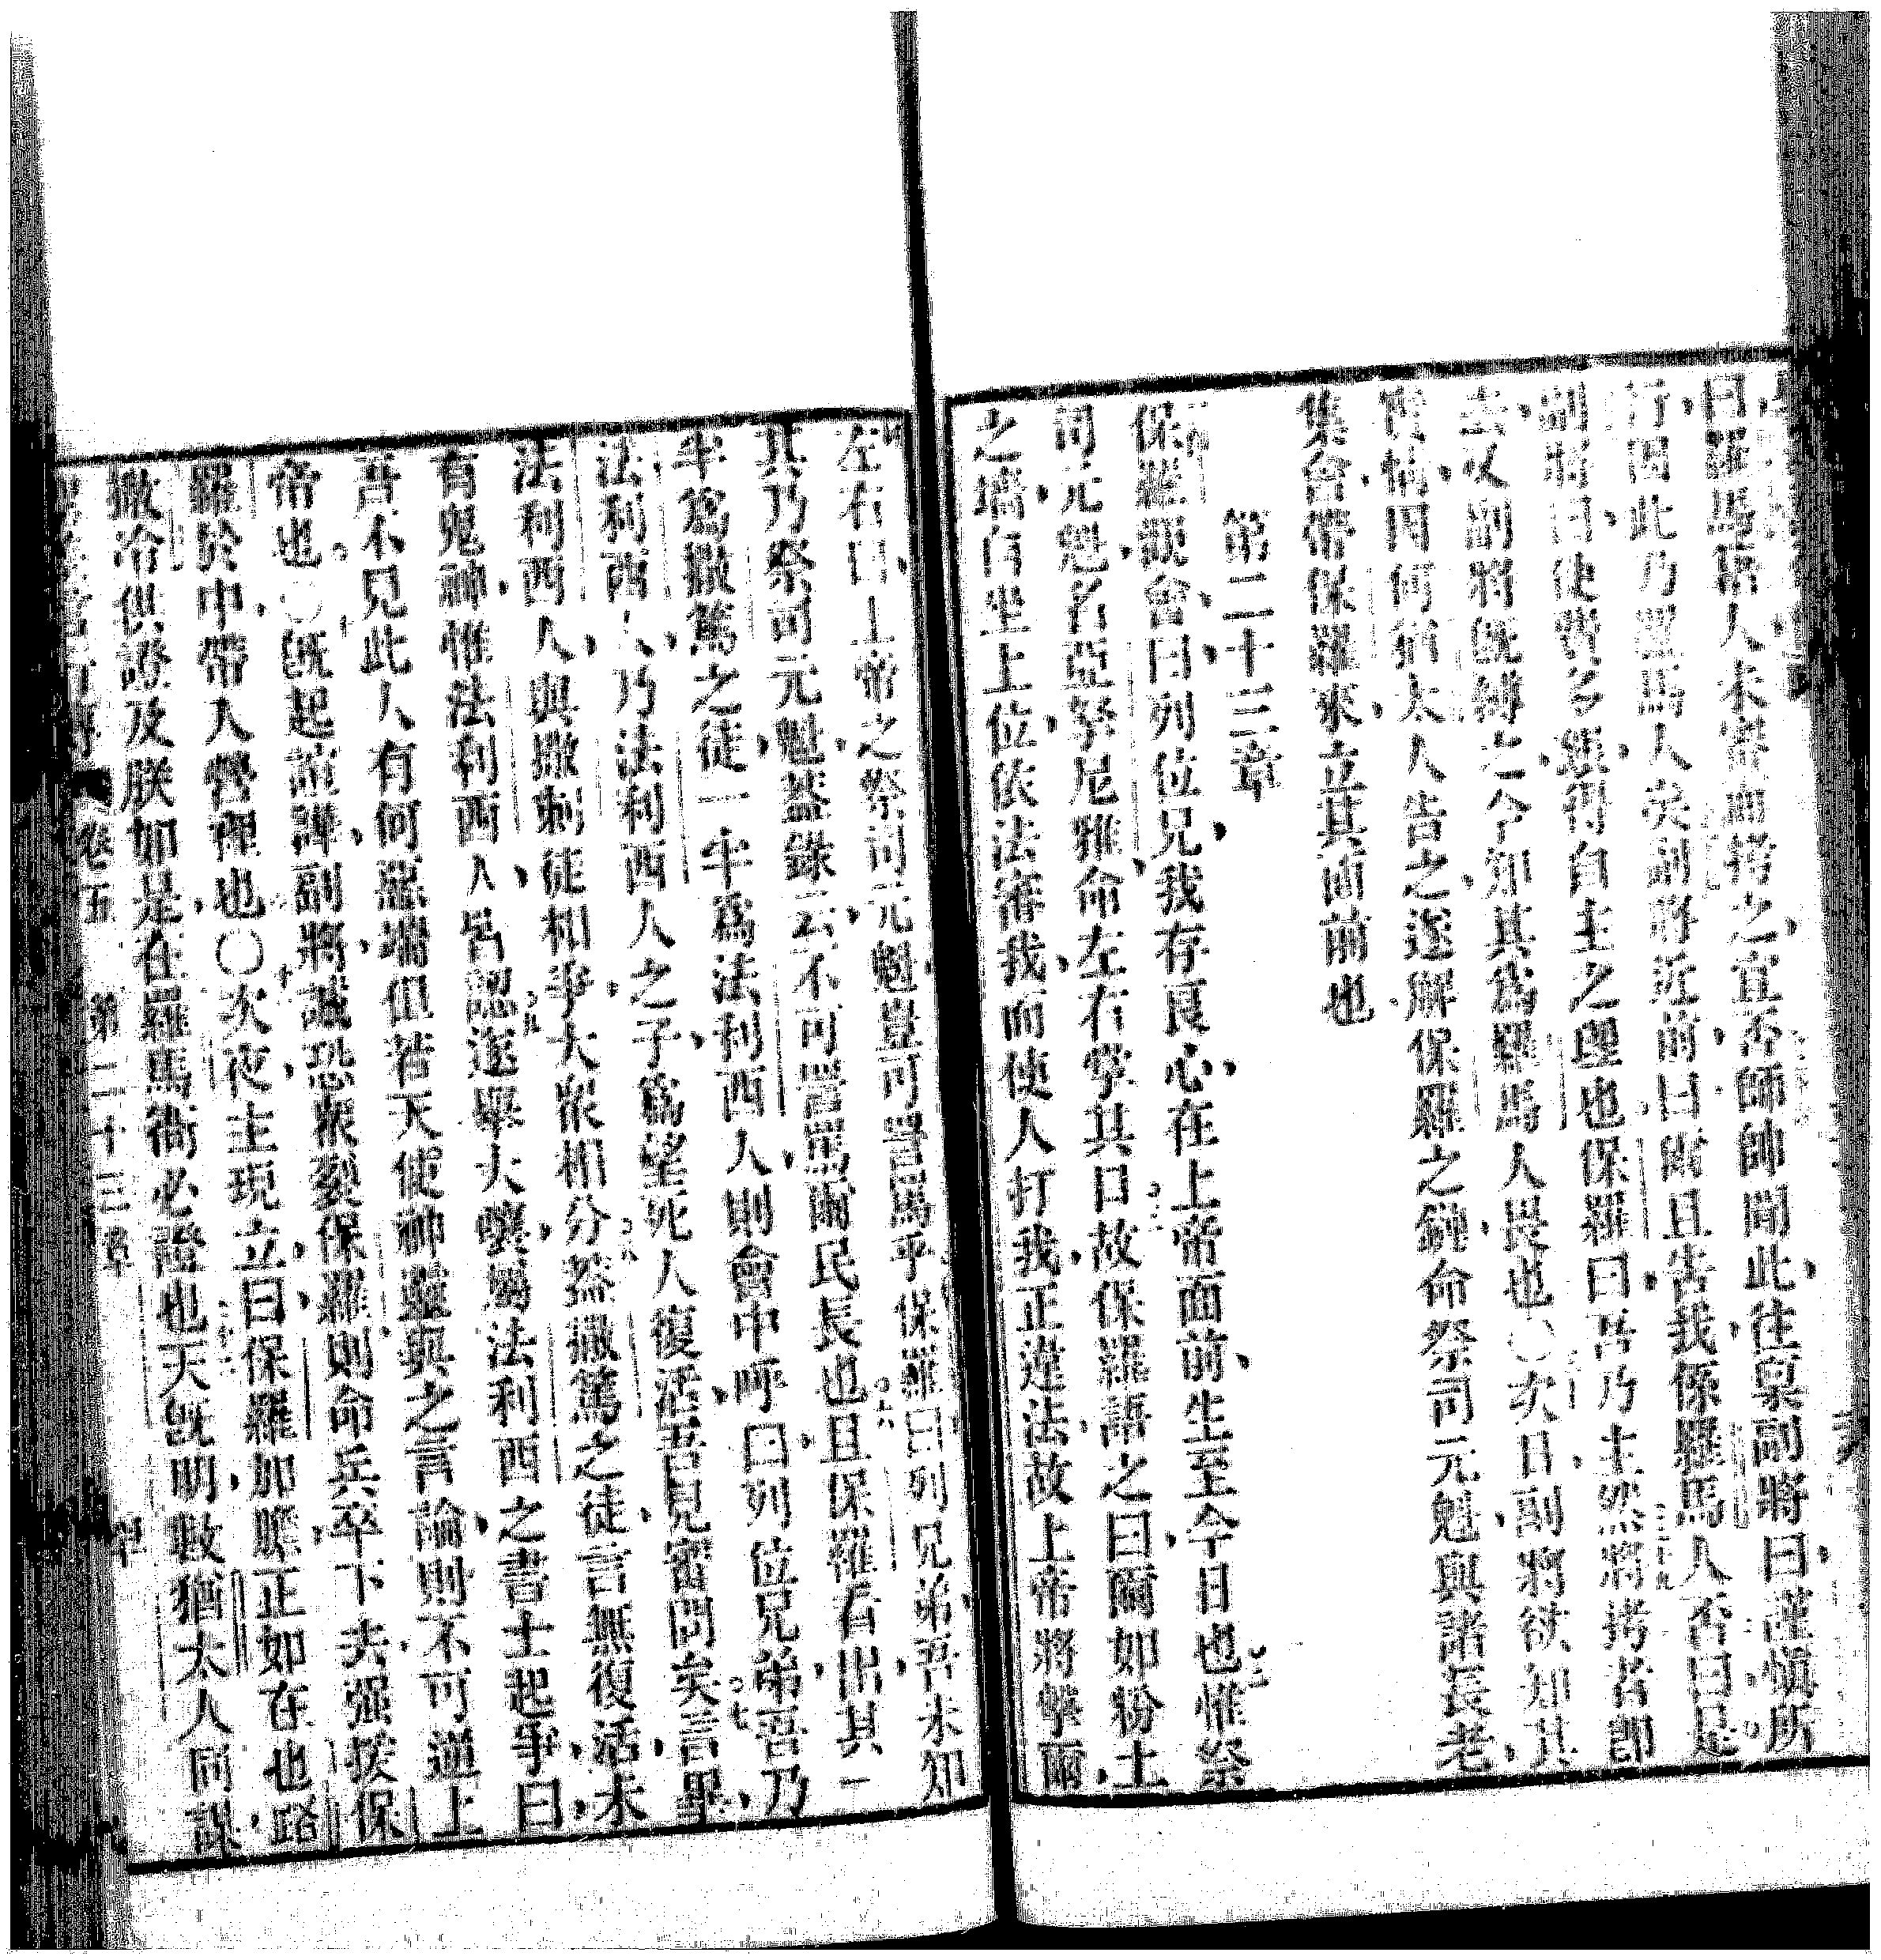 曰羅馬居人未審而拷之宜否師帥聞此往稟副將曰謹愼所
行因此乃羅馬人矣副將近前曰爾且告我係羅馬人否曰是
副將曰使費多銀得自主之理也保羅曰吾乃主然將拷者卽
去又副將旣縛之今知其爲羅馬人畏也〇次日副將欲知其
實情因何猶太人告之遂解保羅之鏈命祭司元魁與諸長老
集會帶保羅來立其面前也
第二十三章
保羅視會曰列位兄我存良心在上帝面前生至今日也惟祭
司元魁名亞拏尼雅命左右掌其口故保羅語之曰爾如粉土
之墻自坐上位依法審我而使人打我正違法故上帝將擊爾
左右曰上帝之祭司元魁豈可詈罵乎保羅曰列兄弟吾未知
其乃祭司元魁蓋錄云不可詈罵爾民長也且保羅看出其一
半爲撒篤之徒一半爲法利西人則會中呼曰列位兄弟吾乃
法利西人乃法利西人之子爲望死人復活吾見審問矣言畢
法利西人與撒刺徒相爭大眾相分蓋撒篤之徒言無復活未
有鬼神惟法利西人皆認遂舉大嚷屬法利西之書士起爭曰
吾不見此人有何惡端但若天使神靈與之言論則不可逆上
帝也〇旣起諠譁副將誠恐眾裂保羅則命兵卒下去强援保
羅於中帶入營裡也〇次夜主現立曰保羅加膽正如在也路
撒冷供證及朕如是在羅馬衙必證也天旣明數猶太人同謀
卷五 第二十三章